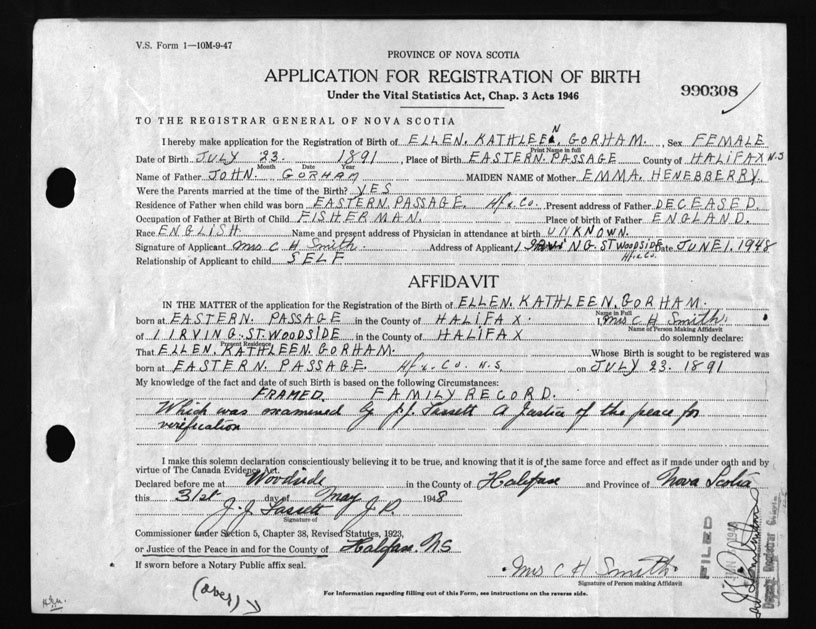 V.S. Form 1—10M-9-47
PROVINCE OF NOVA SCOTIA
APPLICATION FOR REGISTRATION OF BIRTH
Under the Vital Statistics Act, Chap. 3 Acts 1946
990308
TO THE REGISTRAR GENERAL OF NOVA SCOTIA
I hereby make application for the Registration of Birth of ELLEN. KATHLEEN. GORHAM., Sex FEMALE
Print Name in full
Date of Birth JULY 23. 1891, Place of Birth EASTERN. PASSAGE County of HALIFAX N.S
Month Date Year
Name of Father JOHN. GORHAM MAIDEN NAME of Mother EMMA. HENEBBERRY.
Were the Parents married at the time of the Birth? YES
Residence of Father when child was born EASTERN. PASSAGE. Hfx. Co. Present address of Father DECEASED.
Occupation of Father at Birth of Child FISHERMAN. Place of birth of Father ENGLAND.
Race ENGLISH Name and present address of Physician in attendance at birth UNKNOWN.
Signature of Applicant Mrs C H Smith. Address of Applicant 1 ST WOODSIDE Date JUNE 1. 1948
Hfx Co.
Relationship of Applicant to child SELF
AFFIDAVIT
IN THE MATTER of the application for the Registration of the Birth of ELLEN. KATHLEEN. GORHAM.
Name in Full
born at EASTERN. PASSAGE in the County of HALIFAX. I, Mrs C H Smith.
Name of Person Making Affidavit
of 1 IRVING. ST. WOODSIDE in the County of HALIFAX do solemnly declare:
Present Residence
That ELLEN. KATHLEEN. GORHAM. Whose Birth is sought to be registered was
born at EASTERN. PASSAGE. Hfx. Co. N.S. on JULY 23. 1891
My knowledge of the fact and date of such Birth is based on the following Circumstances:
FRAMED. FAMILY RECORD.
Which was examined by J.J. Fassett A Justice of the peace for
verification
I make this solemn declaration conscientiously believing it to be true, and knowing that it is of the same force and effect as if made under oath and by
virtue of The Canada Evidence Act.
Declared before me at Woodside in the County of Halifax and Province of Nova Scotia
this 31st day of May 1948
J. J. Fassett J.P.
Signature of
Commissioner under Section 5, Chapter 38, Revised Statutes, 1923,
or Justice of the Peace in and for the County of Halifax. N.S
If sworn before a Notary Public affix seal.
Mrs C H Smith.
Signature of Person making Affidavit
(over)
For Information regarding filling out of this Form, see instructions on the reverse side.
FILED